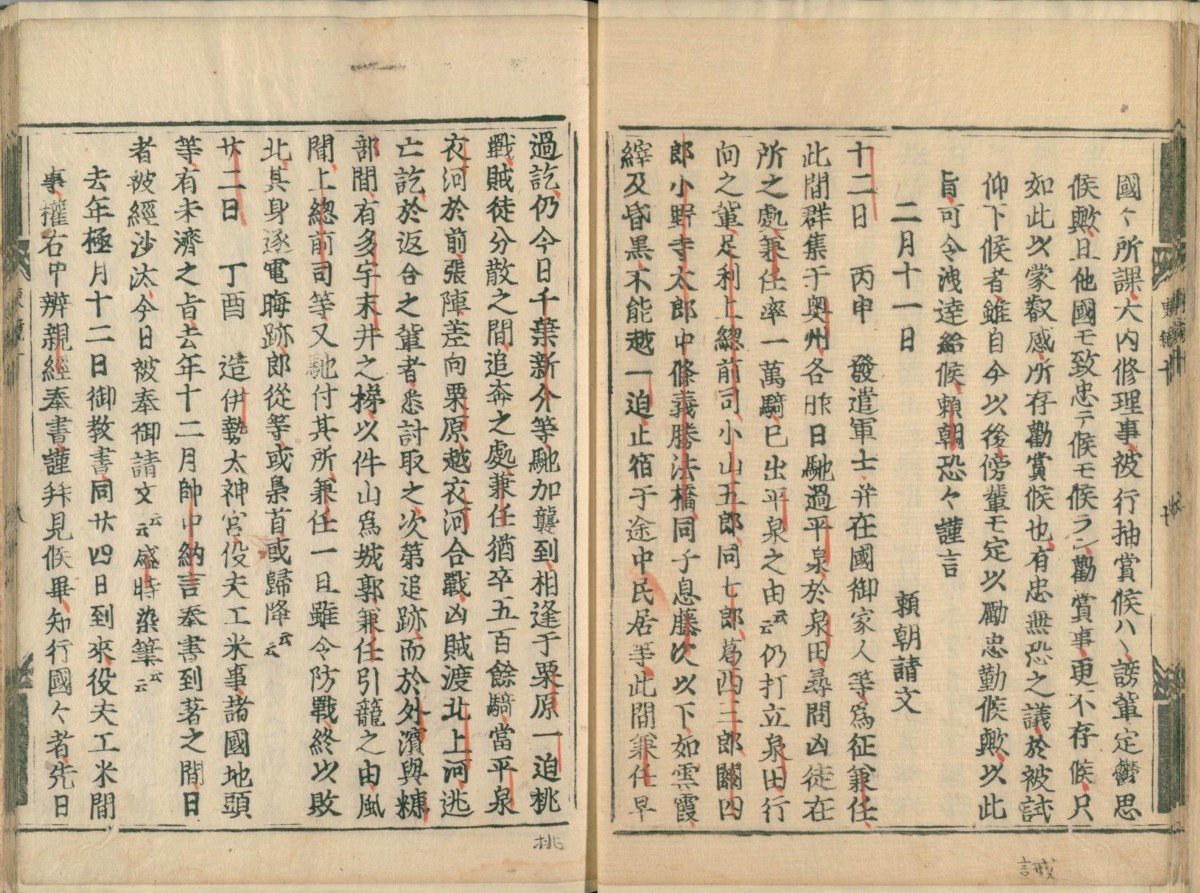 國々所課大内修理事、被行抽賞候ハヽ、謗輩定欝思
候歟、且他國モ致忠テ候モ候ラン、勸賞事、更不存候、只
如此以蒙叡感、所存勸賞候也、有忠無恐之議、於被試
仰下候者、雖自今以後、傍輩モ定以勵忠勤候歟、以此
旨、可令洩達給候、頼朝恐々謹言
二月十一日　頼朝請文
十二日　丙申　發遣軍士、并在國御家人等、爲征兼任、
此間群集于奥州、各昨日馳過平泉、於泉田尋問凶徒在
所之處、兼任率一萬騎、已出平泉之由云云仍打立泉田行
向之輩、足利上総前司、小山五郎、同七郎、葛西三郎、關四
郎、小野寺太郎、中條義勝法橋、同子息藤次以下、如雲霞、
縡及昏黒、不能越一迫、止宿于途中民居等、此間兼任早
過訖、仍今日千葉新介等、馳加襲到、相逢于栗原一迫桃
戰、賊徒分散之間、追奔之處、兼任猶卒五百餘騎、當平泉
夜河於前、張陣、差向栗原、越衣河合戰、凶賊渡北上河、逃
亡訖、於返合之輩者、悉討取之、次第追跡、而於外濱與糠
部間、有多宇末井之梯、以件山爲城郭、兼任引籠之由、風
聞、上総前司等又馳付其所、兼任一旦雖令防戰、終以敗
北、其身逐電晦跡、郎從等或梟首或歸降云云
廿二日　丁酉　造伊勢太神宮役夫工米事、諸國地頭
等、有未濟之旨、去年十二月帥中納言奉書到著之間、日
者被經沙汰、今日被奉御請文云云盛時染筆云云
去年極月十二日御教書、同廿四日到來、役夫工米間
事、權右中辨親經奉書、謹拜見候畢、知行國々者、先日
桃
誡
言